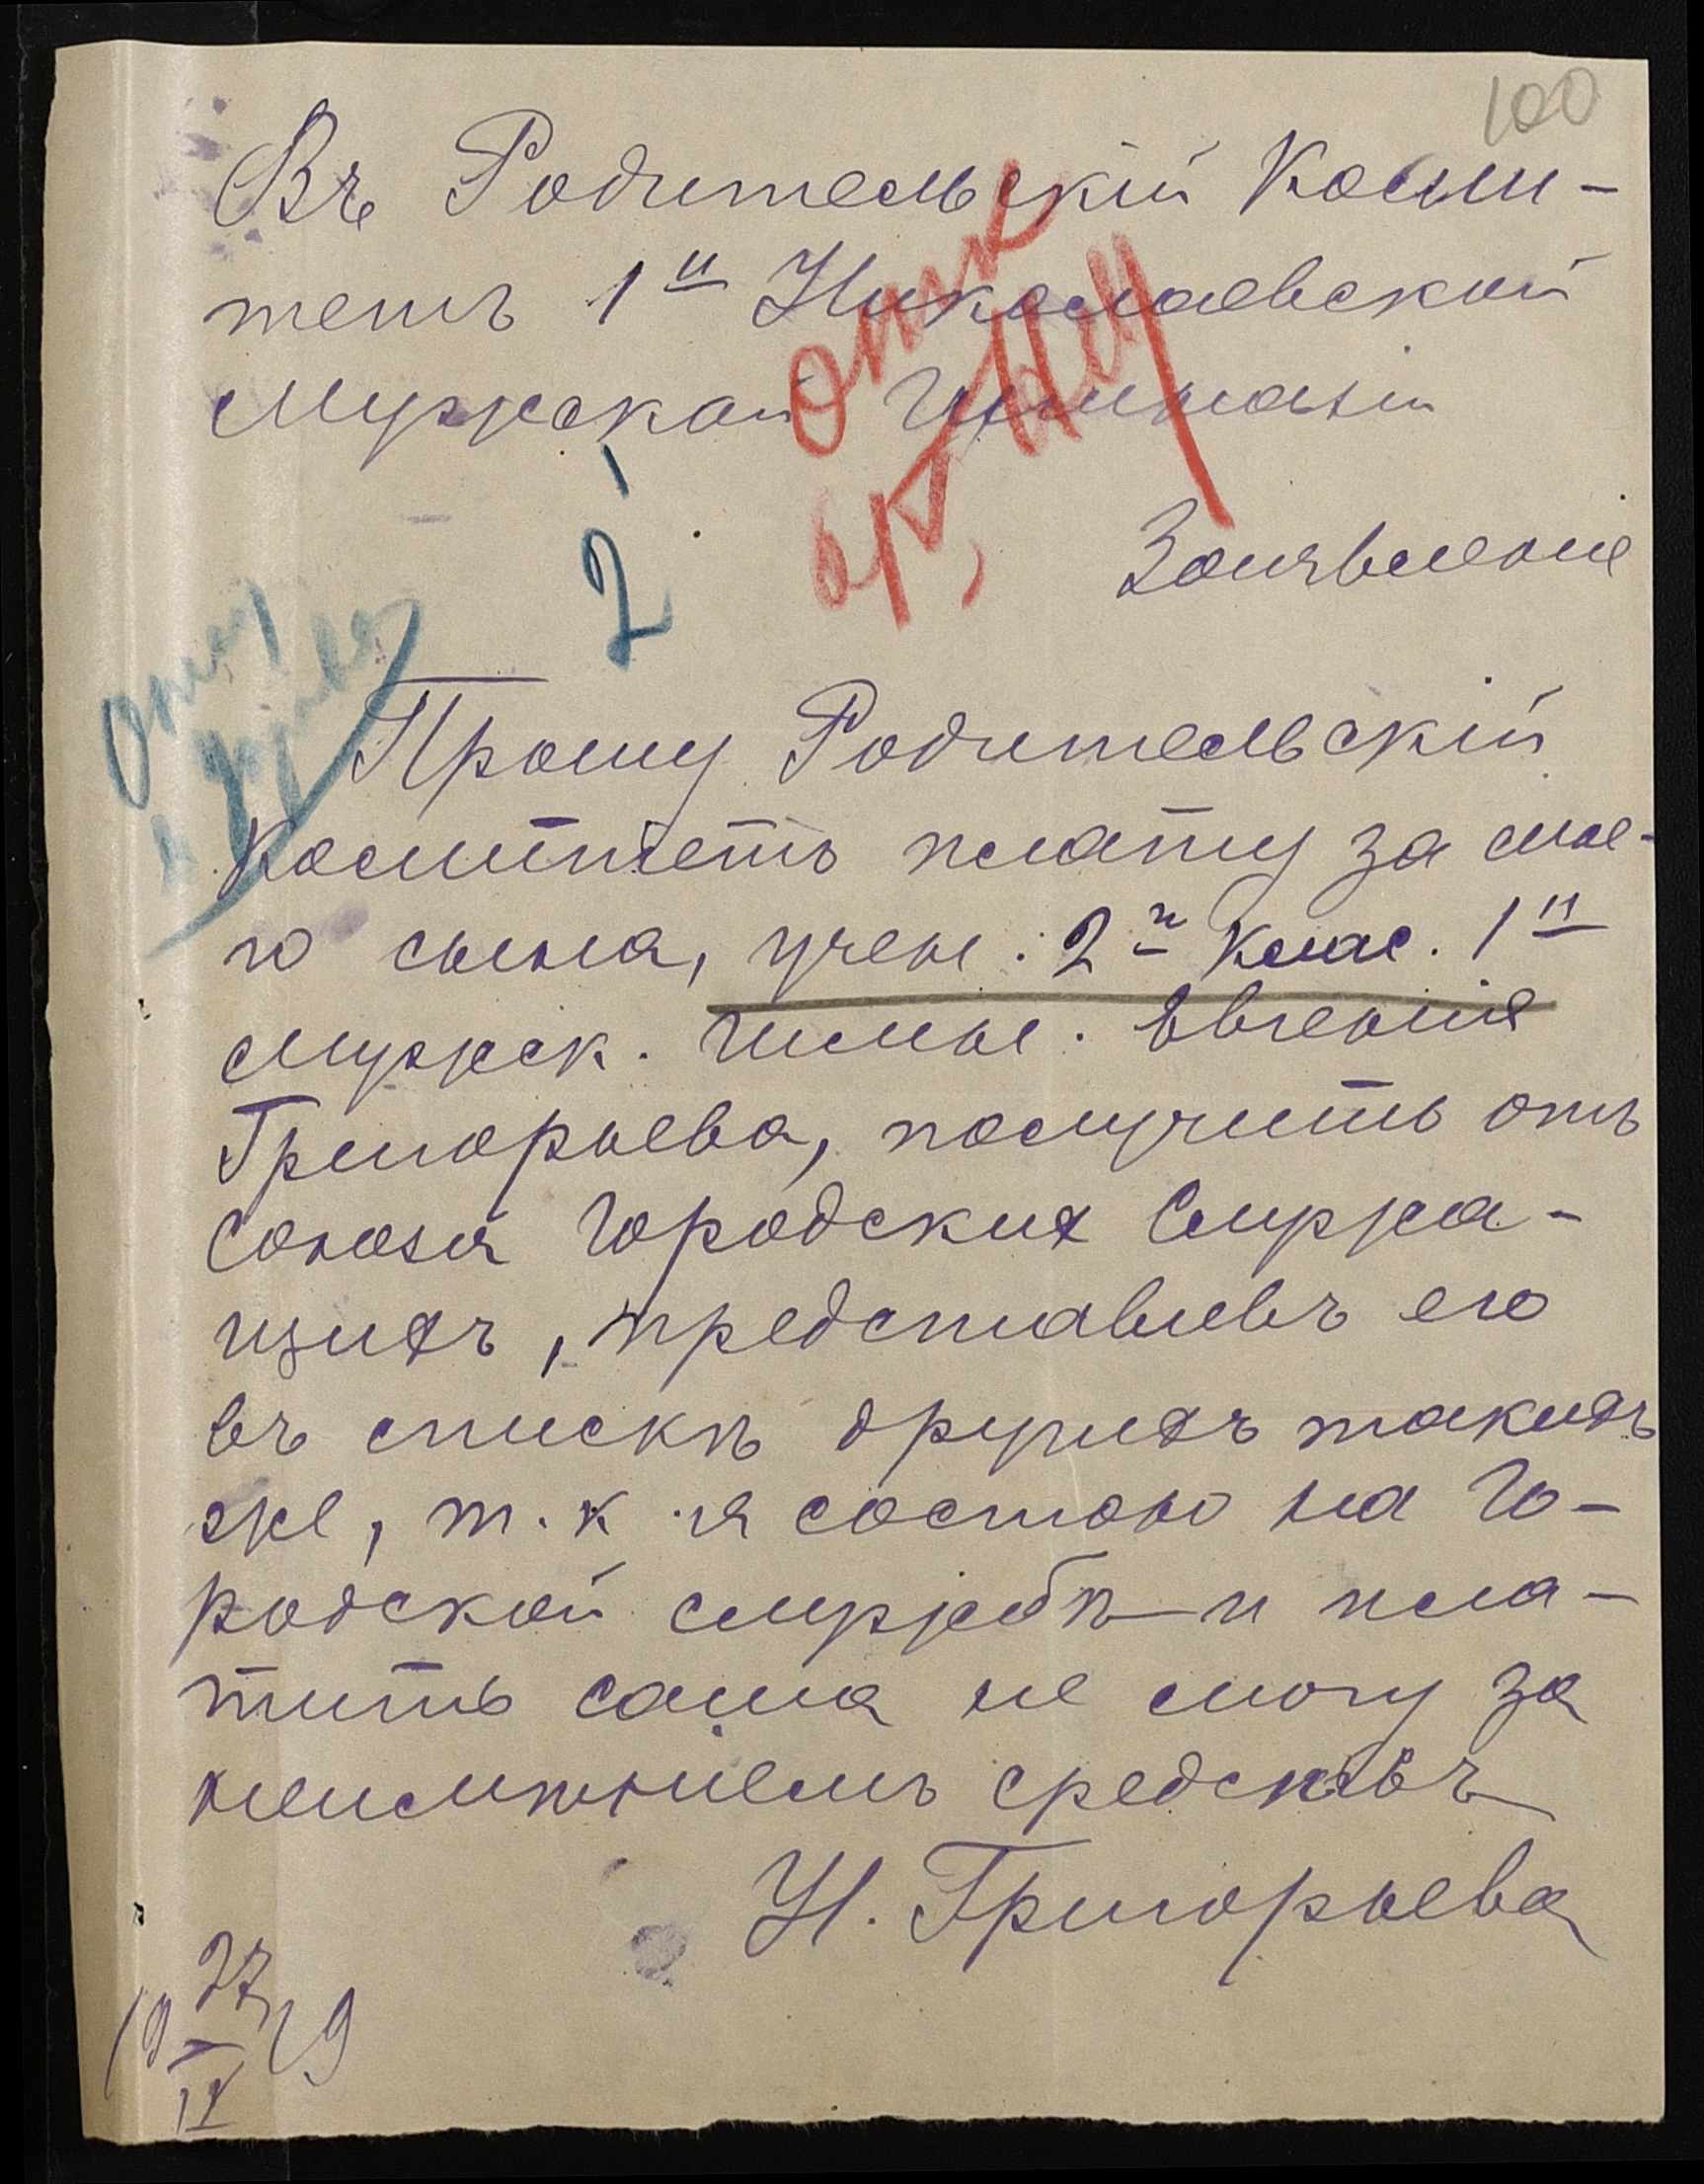 100
Въ Родительскій Коми-
тетъ 1й Николаевской
Мужской Гимназіи
2
Заявленіе
Прошу Родительскій
Комитетъ плату за мое-
го сына, учен. 2й клас. 1й
мужск. гимн. Евгенія
Григорьева, получить отъ
Союза Городских Служа-
щихъ, представивъ его
въ спискѣ другихъ такихъ
же, т. к я состою на Го-
родской службѣ и пла-
тить сама не могу за
неимѣніемъ средствъ
Н. Григорьева
19 27/IV 19